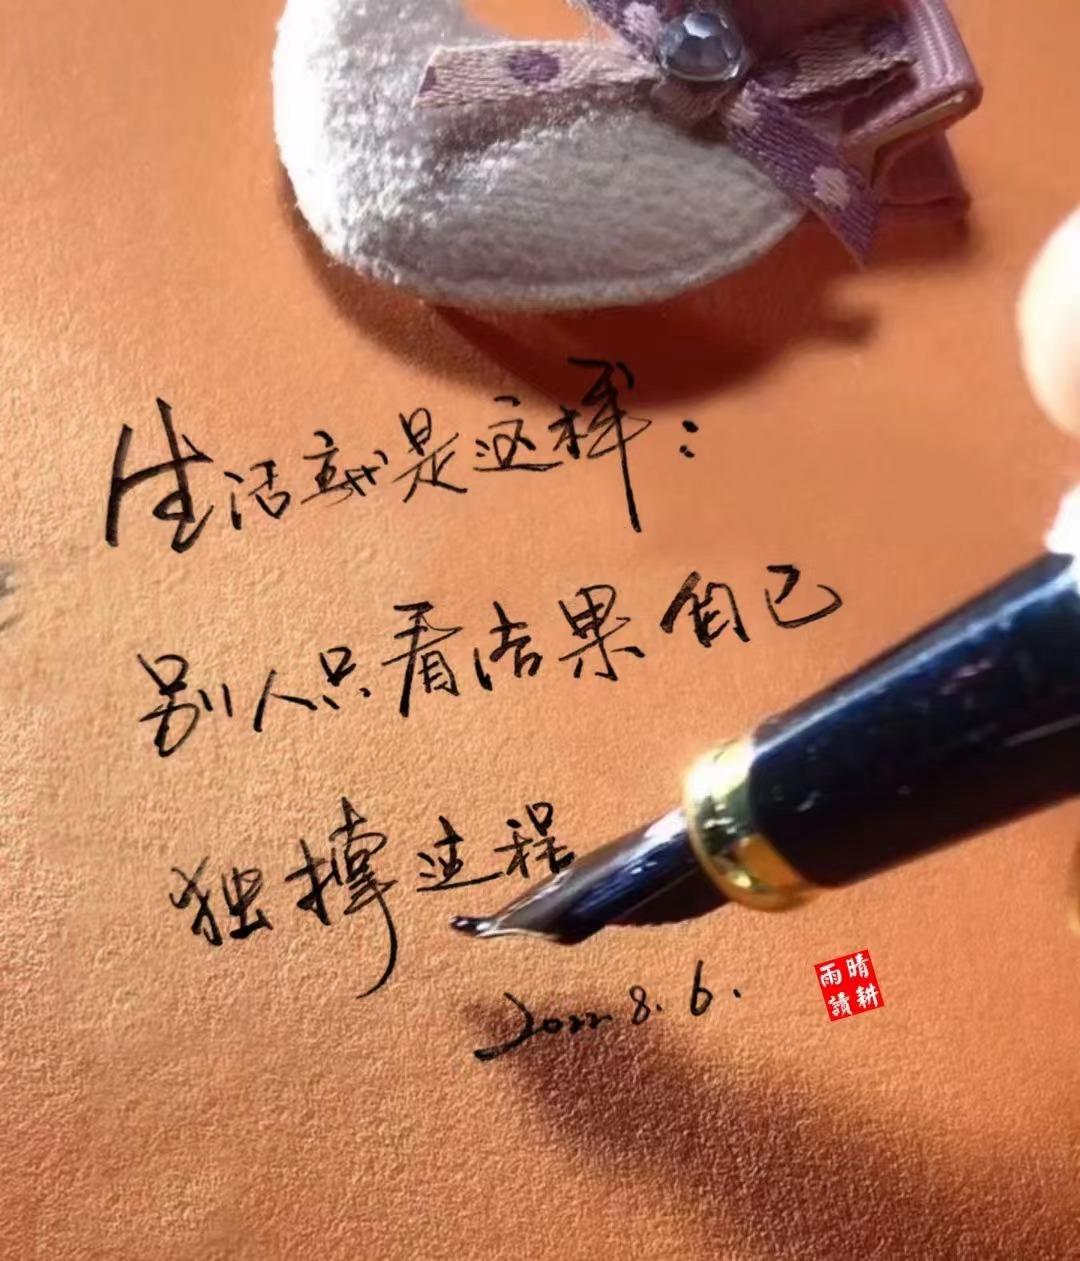 生活就是这样：
别人只看结果 自己
独撑过程
2022.8.6.
晴耕
雨讀